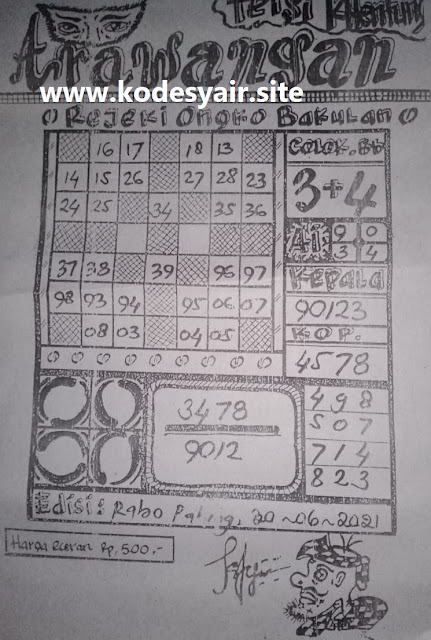 Teisi Khentung
Arawangan
www.kodesyair.site
Rejeki Ongko Bakulan
16 17 18 13
14 15 26 27 28 23
24 25 34 35 36
37 38 39 96 97
98 93 94 95 06 07
08 03 04 05
Colok. BB
3+4
Ai 9 0
3 4
Kepala
90123
KOP.
4578
3478
9012
4 9 8
5 0 7
7 1 4
8 2 3
Edisi: Rabo Pahing, 30-06-2021
Harga Eceran Rp, 500,-